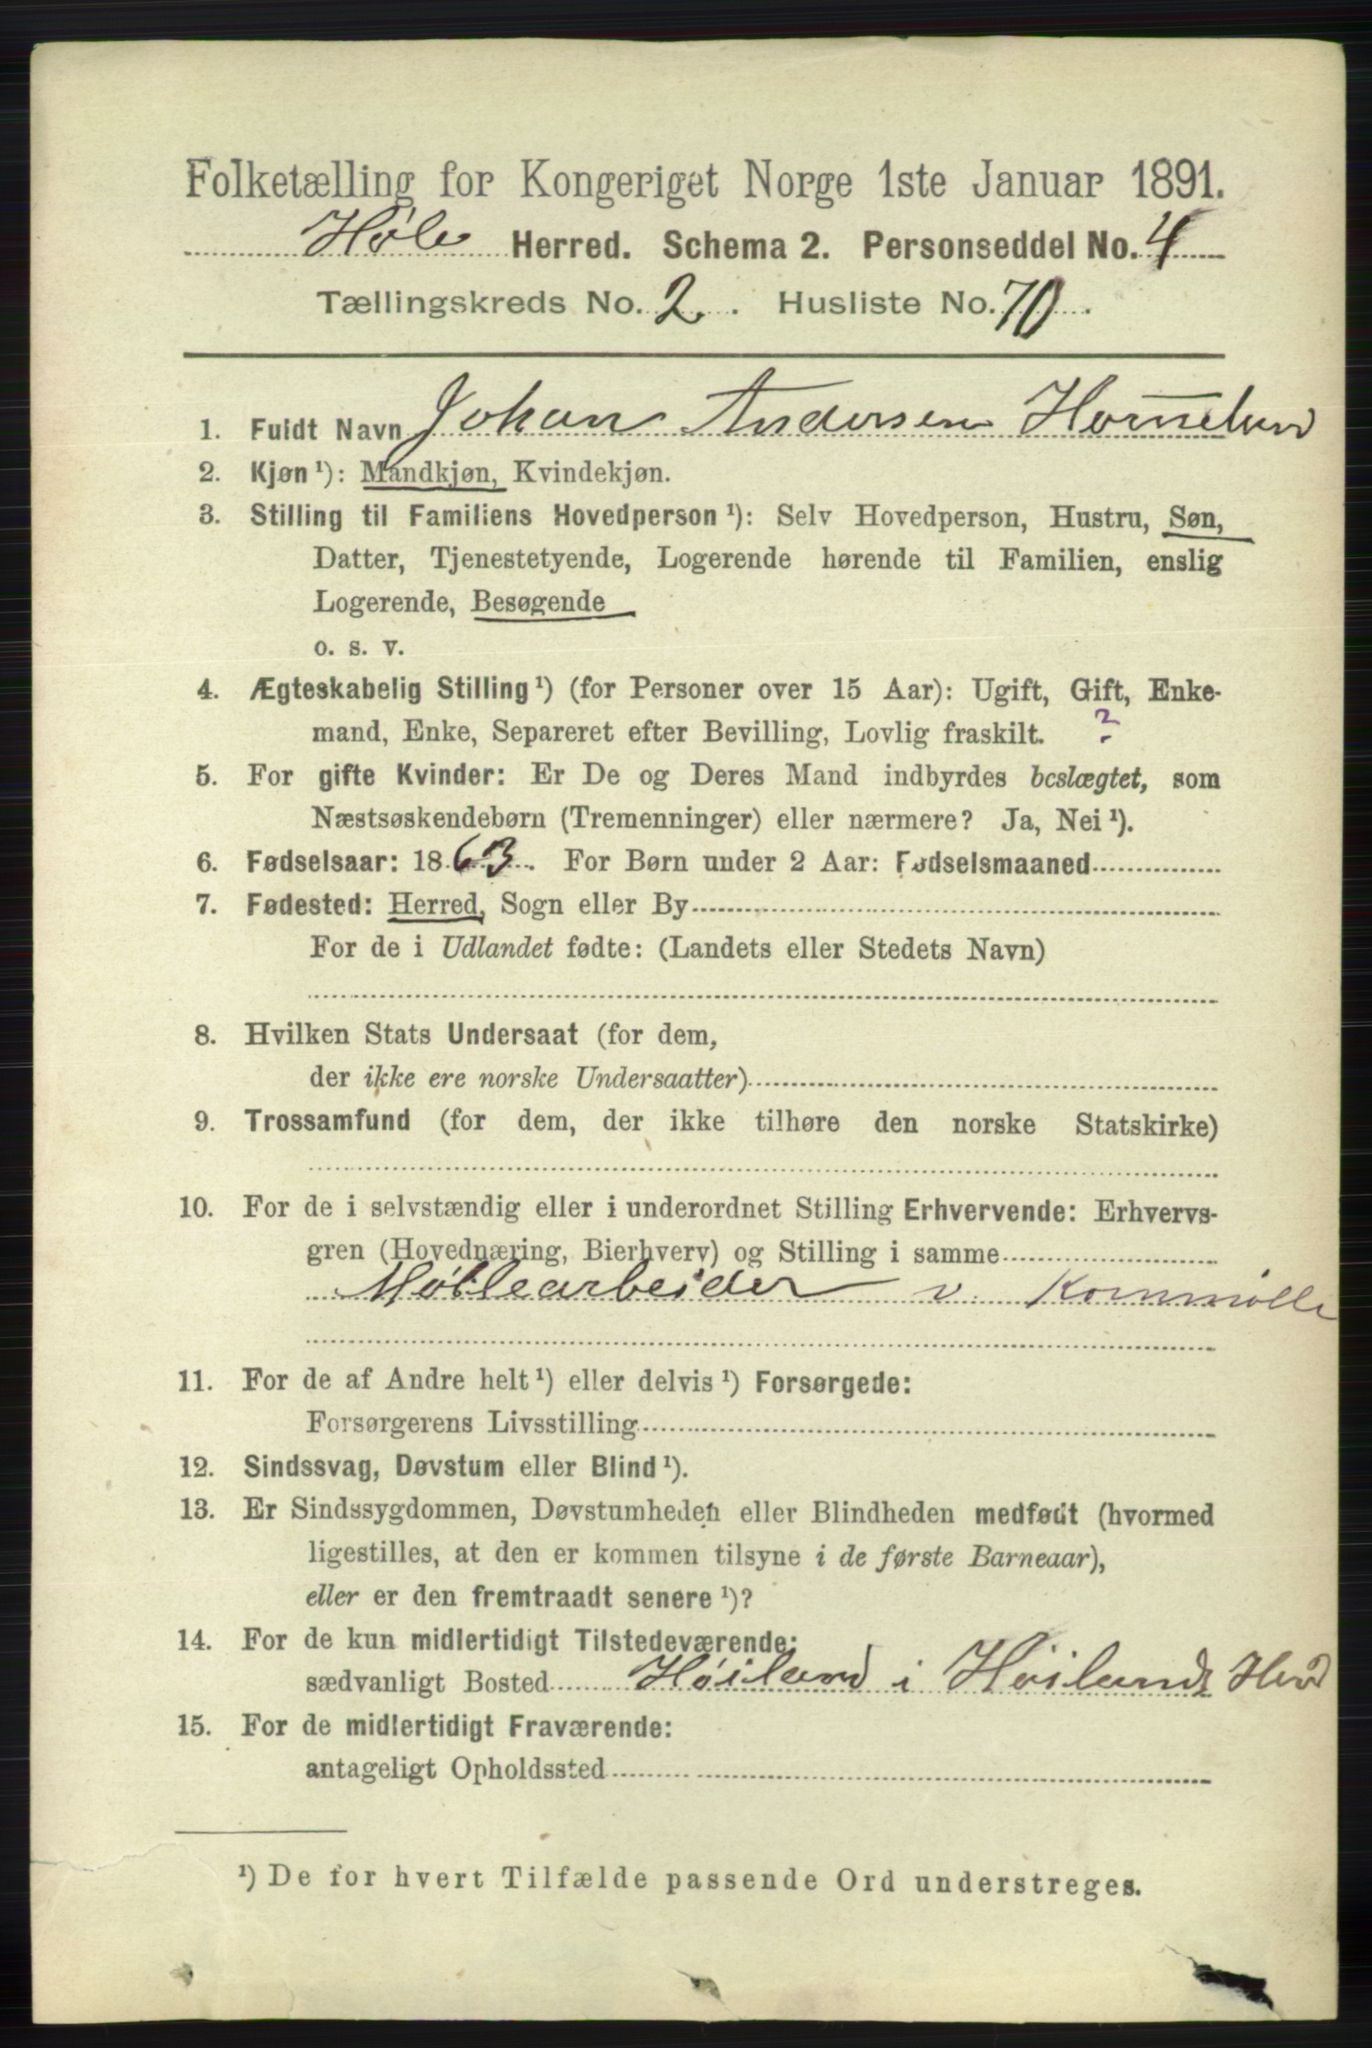 Folketælling for Kongeriget Norge 1ste Januar 1891.
Høle Herred. Schema 2. Personseddel No. 4
Tællingskreds No. 2. Husliste No. 70.
1. Fuldt Navn Johan Andersen
2. Kjøn ¹): Mandkjøn, Kvindekjøn.
3. Stilling til Familiens Hovedperson ¹): Selv Hovedperson, Hustru, Søn,
Datter, Tjenestetyende, Logerende hørende til Familien, enslig
Logerende, Besøgende
o. s. v.
4. Ægteskabelig Stilling ¹) (for Personer over 15 Aar): Ugift, Gift, Enke-
mand, Enke, Separeret efter Bevilling, Lovlig fraskilt. ?
5. For gifte Kvinder: Er De og Deres Mand indbyrdes beslægtet, som
Næstsøskendebørn (Tremenninger) eller nærmere? Ja, Nei ¹).
6. Fødselsaar: 1863. For Børn under 2 Aar: Fødselsmaaned
7. Fødested: Herred, Sogn eller By
For de i Udlandet fødte: (Landets eller Stedets Navn)
8. Hvilken Stats Undersaat (for dem,
der ikke ere norske Undersaatter)
9. Trossamfund (for dem, der ikke tilhøre den norske Statskirke)
10. For de i selvstændig eller i underordnet Stilling Erhvervende: Erhvervs-
gren (Hovednæring, Bierhverv) og Stilling i samme
Møllearbeider v. Kornmølle
11. For de af Andre helt ¹) eller delvis ¹) Forsørgede:
Forsørgerens Livsstilling
12. Sindssvag, Døvstum eller Blind ¹).
13. Er Sindssygdommen, Døvstumheden eller Blindheden medfødt (hvormed
ligestilles, at den er kommen tilsyne i de første Barneaar),
eller er den fremtraadt senere ¹)?
14. For de kun midlertidigt Tilstedeværende:
sædvanligt Bosted Høiland i Høilands Herd
15. For de midlertidigt Fraværende:
antageligt Opholdssted
¹) De for hvert Tilfælde passende Ord understreges.